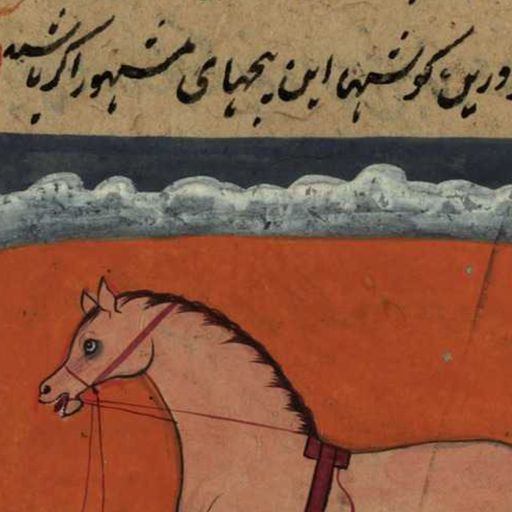 و درین گوشها این بچهای مشهور اگر باشد